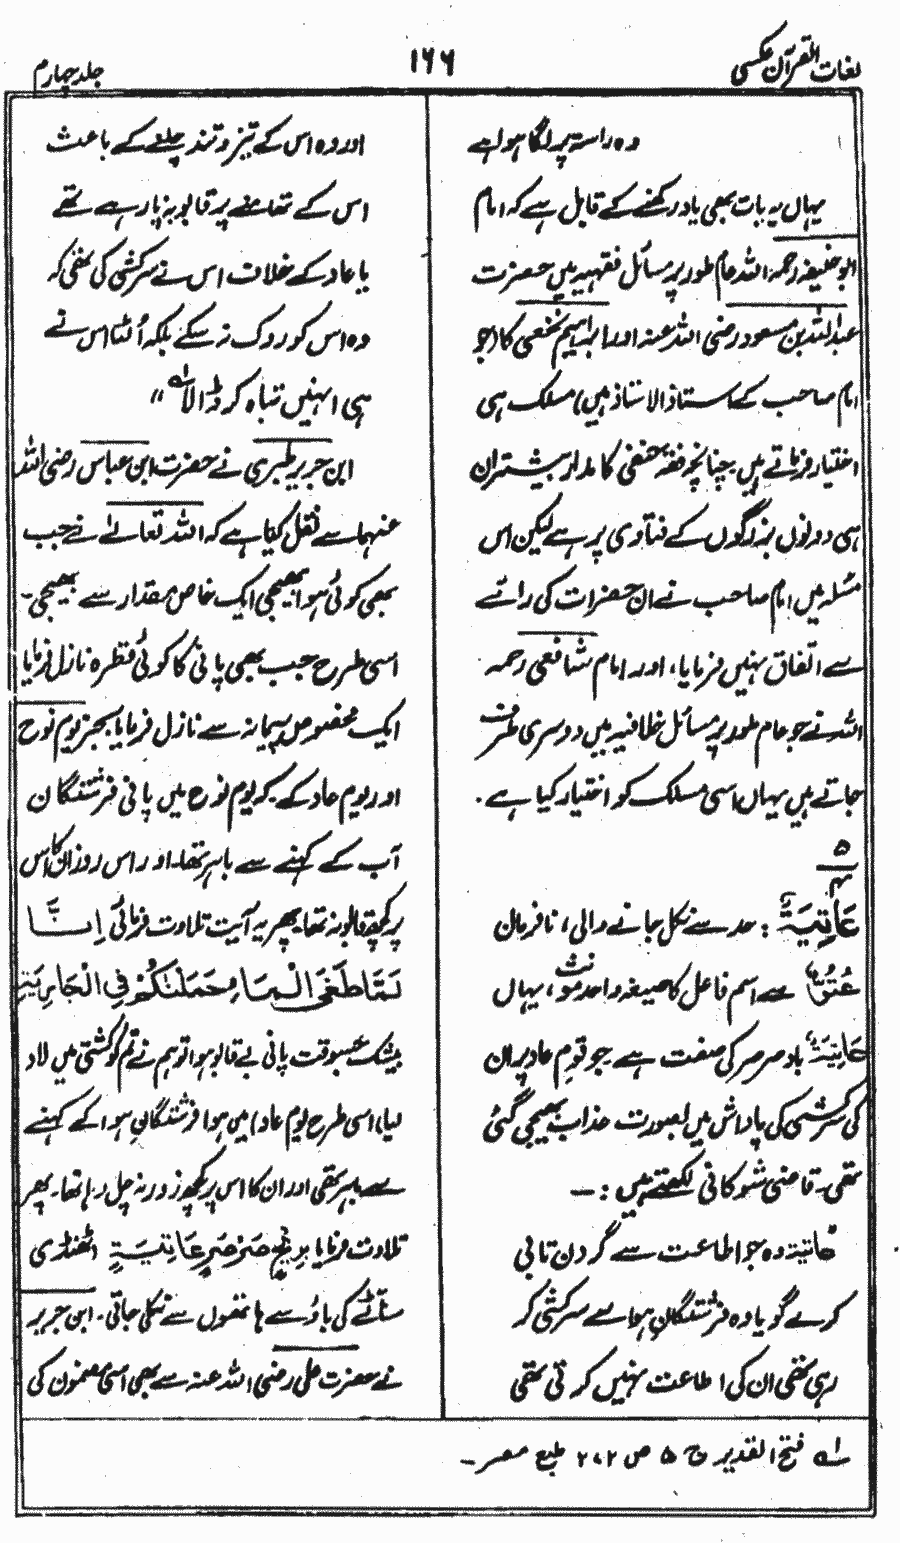 لغات القرآن عکسی
۱۶۶
جلد چہارم
وہ راستہ پر لگا ہوا ہے
یہاں یہ بات بھی یاد رکھنے کے قابل ہے کہ امام
ابو حنیفہ رحمہ اللہ عام طور پر مسائل فقہیہ میں حضرت
عبداللہ بن مسعود رضی اللہ عنہ اور ابراہیم نخعی کا (جو
امام صاحب کے استاذ الاستاذ ہیں) مسلک ہی
اختیار فرماتے ہیں چنانچہ فقہ حنفی کا مدار بیشتر ان
ہی دونوں بزرگوں کے فتاوی پر ہے لیکن اس
مسئلہ میں امام صاحب نے ان حضرات کی رائے
سے اتفاق نہیں فرمایا، اور امام شافعی رحمہ
اللہ نے جو عام طور پر مسائل خلافیہ میں دوسری طرف
جاتے ہیں یہاں اسی مسلک کو اختیار کیا ہے .
۵
۴
عَاتِیَةٍ : حد سے نکل جانے والی، نافرمان
عُتُوٌّ سے اسم فاعل کا صیغہ واحد مونث، یہاں
عَاتِیَةٍ باد صرصر کی صفت ہے جو قوم عاد پر ان
کی سرکشی کی پاداش میں بصورت عذاب بھیجی گئی
تھی۔ قاضی شوکانی لکھتے ہیں :۔
عاتیتہ وہ جو اطاعت سے گردن تابی
کرے گویا وہ فرشتگانِ ہوا سے سرکشی کر
رہی تھی ان کی اطاعت نہیں کرتی تھی
اور وہ اس کے تیز و تند چلنے کے باعث
اس کے تھامنے پر قابو نہ پا رہے تھے
یا عاد کے خلاف اس نے سرکشی کی تھی کہ
وہ اس کو روک نہ سکے بلکہ اُلٹا اس نے
ہی انہیں تباہ کر ڈالا ؂۱ "
ابن جریر طبری نے حضرت ابن عباس رضی اللہ
عنہما سے نقل کیا ہے کہ اللہ تعالےٰ نے جب
بھی کوئی ہوا بھیجی ایک خاص مقدار سے بھیجی۔
اسی طرح جب بھی پانی کا کوئی قطرہ نازل فرمایا
ایک مخصوص پیمانہ سے نازل فرمایا بجز یوم نوح
اور یوم عاد کے۔ کہ یوم نوح میں پانی فرشتگان
آب کے کہنے سے باہر تھا۔ اور اس روز ان کا اس
پر کچھ قابو نہ تھا۔ پھر یہ آیت تلاوت فرمائی اِنَّا
لَمَّا طَغَی الْمَاءُ حَمَلْنٰکُمْ فِی الْجَارِیَةِ
بیشک جس وقت پانی بے قابو ہوا تو ہم نے تم کو کشتی میں لاد
لیا) اسی طرح یوم عاد میں ہوا فرشتگانِ ہوا کے کہنے
سے باہر تھی اور ان کا اس پر کچھ زور نہ چل رہا تھا۔ پھر
تلاوت فرمایا بِرِیْحٍ صَرْصَرٍ عَاتِیَةٍ (ٹھنڈی
سناٹے کی باؤ سے ہاتھوں سے نکلی جاتی۔ ابن جریر
نے حضرت علی رضی اللہ عنہ سے بھی اسی مضمون کی
؂۱ فتح القدیر ج ۵ ص ۲۷۲ طبع مصر۔